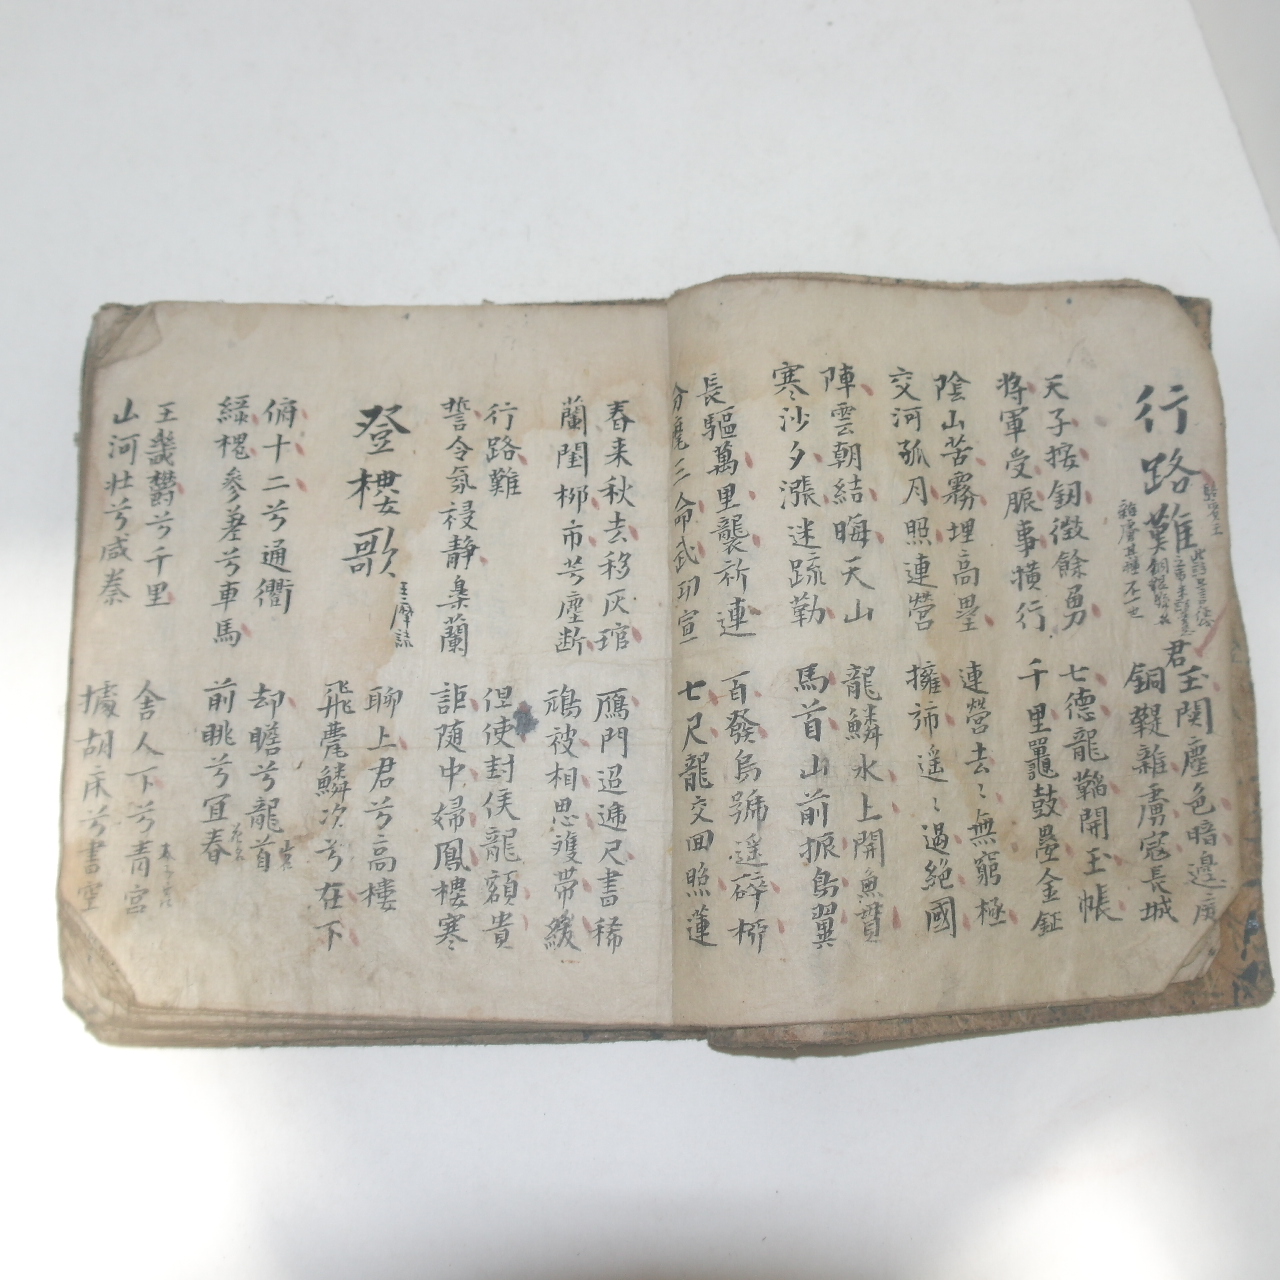 行路難
駱賓王
君玉関塵色暗邊庭
銅鞮雜虜寇長城
天子按劒徵餘勇
將軍受脤事横行
七德龍韜開玉帳
千里鼉鼓疊金鉦
陰山苦霧埋高壘
交河孤月照連營
連營去〻無窮極
擁斾遥〻過絶國
陣雲朝結晦天山
寒沙夕漲迷疏勒
龍鱗水上開魚貫
馬首山前振鳥翼
長驅萬里襲祈連
分麾三命武功宣
百發烏號遥碎柳
七尺龍文回照蓮
春来秋去移灰琯
蘭閨柳市芳塵断
鴈門迢遞尺書稀
鴛被相思雙帶緩
行路難
誓令氛祲靜皋蘭
但使封侯龍額貴
詎随中婦鳳樓寒
登樓歌
王摩詰
聊上君兮高樓
飛甍鱗次兮在下
俯十二兮通衢
緑槐參差兮車馬
却瞻兮龍首
前眺兮宜春
王畿鬱兮千里
山河壯兮咸秦
舍人下兮青宮
據胡床兮書空